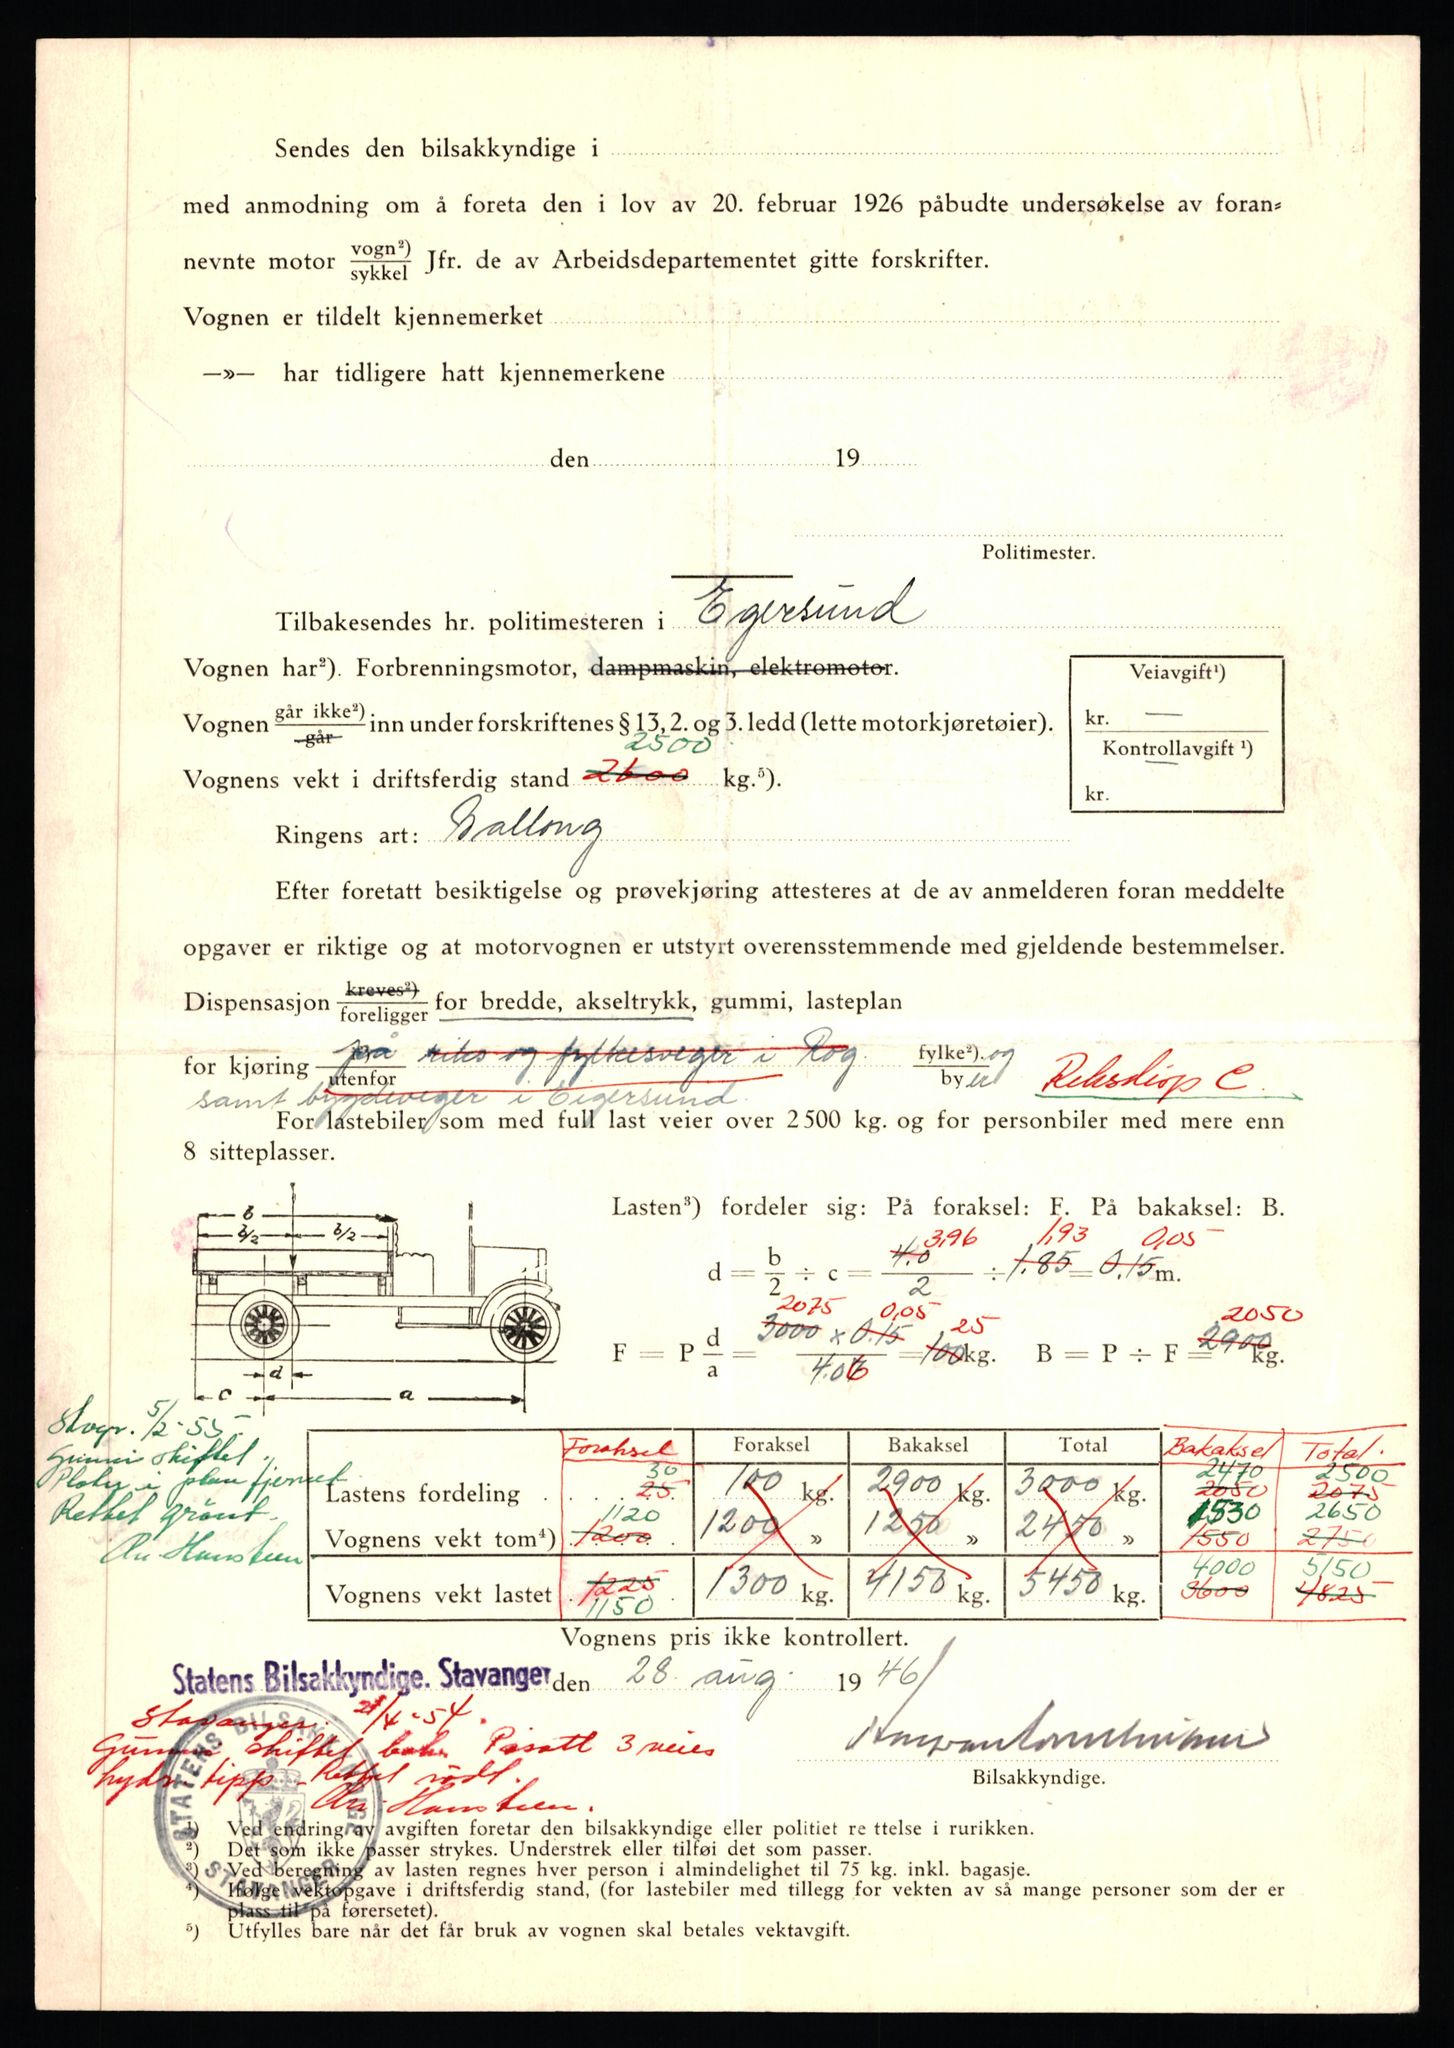 Sendes den bilsakkyndige i
med anmodning om å foreta den i lov av 20. februar 1926 påbudte undersøkelse av foran-
nevnte motor vogn²)/sykkel Jfr. de av Arbeidsdepartementet gitte forskrifter.
Vognen er tildelt kjennemerket
—»— har tidligere hatt kjennemerkene
den 19
Politimester.
Tilbakesendes hr. politimesteren i Egersund
Vognen har²). Forbrenningsmotor, dampmaskin, elektromotor.
Veiavgift¹)
kr. —
Kontrollavgift ¹)
—
kr.
Vognen går ikke²)/går inn under forskriftenes § 13, 2. og 3. ledd (lette motorkjøretøier).
2500
Vognens vekt i driftsferdig stand 2600 kg.⁵).
Ringens art: Ballong
Efter foretatt besiktigelse og prøvekjøring attesteres at de av anmelderen foran meddelte
opgaver er riktige og at motorvognen er utstyrt overensstemmende med gjeldende bestemmelser.
Dispensasjon kreves²)/foreligger for bredde, akseltrykk, gummi, lasteplan
for kjøring på/utenfor riks og fylkesveger i Rog. fylke²)./by er og
samt bygdeveger i Eigersund.
Riksdisp C.
For lastebiler som med full last veier over 2500 kg. og for personbiler med mere enn
8 sitteplasser.
Lasten³) fordeler sig: På foraksel: F. På bakaksel: B.
b
b/2 b/2
3,96 1,93 0,05
d = b/2 ÷ c = 4.0/2 ÷ 1.85 = 0.15 m.
2075 0,05 25 2050
F = P d/a = 3000 x 0.15/4.06 = 100 kg. B = P ÷ F = 2900 kg.
d
c a
Stvgr. 5/2-55
Gummi skiftet.
Plater i plan fjernet
Rettet grønt.
Foraksel Foraksel Bakaksel Total Bakaksel Total.
30 2470 2500
Lastens fordeling 25 100 kg. 2900 kg. 3000 kg. 2050 2075
1120 1530 2650
Vognens vekt tom⁴) 1200 1200 » 1250 » 2450 » 1550 2750
4000 5150
Vognens vekt lastet 1225 1300 kg. 4150 kg. 5450 kg. 3600 4825
1150
Vognens pris ikke kontrollert.
Statens Bilsakkyndige. Stavanger den 28. aug. 1946
Stavanger 21/4-54.
Gummi skiftet bak. Påsatt 3 veies
hydr. tipp – Rettet rødt.
Bilsakkyndige.
STATENS BILSAKKYNDIGE
STAVANGER
¹) Ved endring av avgiften foretar den bilsakkyndige eller politiet re ttelse i rurikken.
²) Det som ikke passer strykes. Understrek eller tilføi det som passer.
³) Ved beregning av lasten regnes hver person i almindelighet til 75 kg. inkl. bagasje.
⁴) Ifølge vektopgave i driftsferdig stand, (for lastebiler med tillegg for vekten av så mange personer som der er
plass til på førersetet).
⁵) Utfylles bare når det får bruk av vognen skal betales vektavgift.